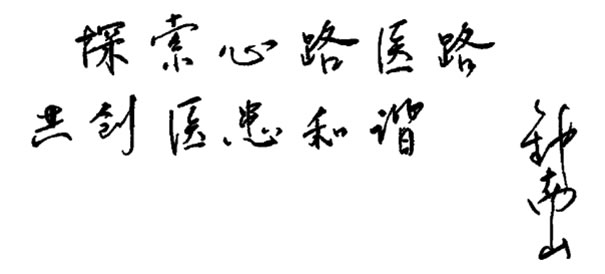 探索心路医路
共创医患和谐
钟南山